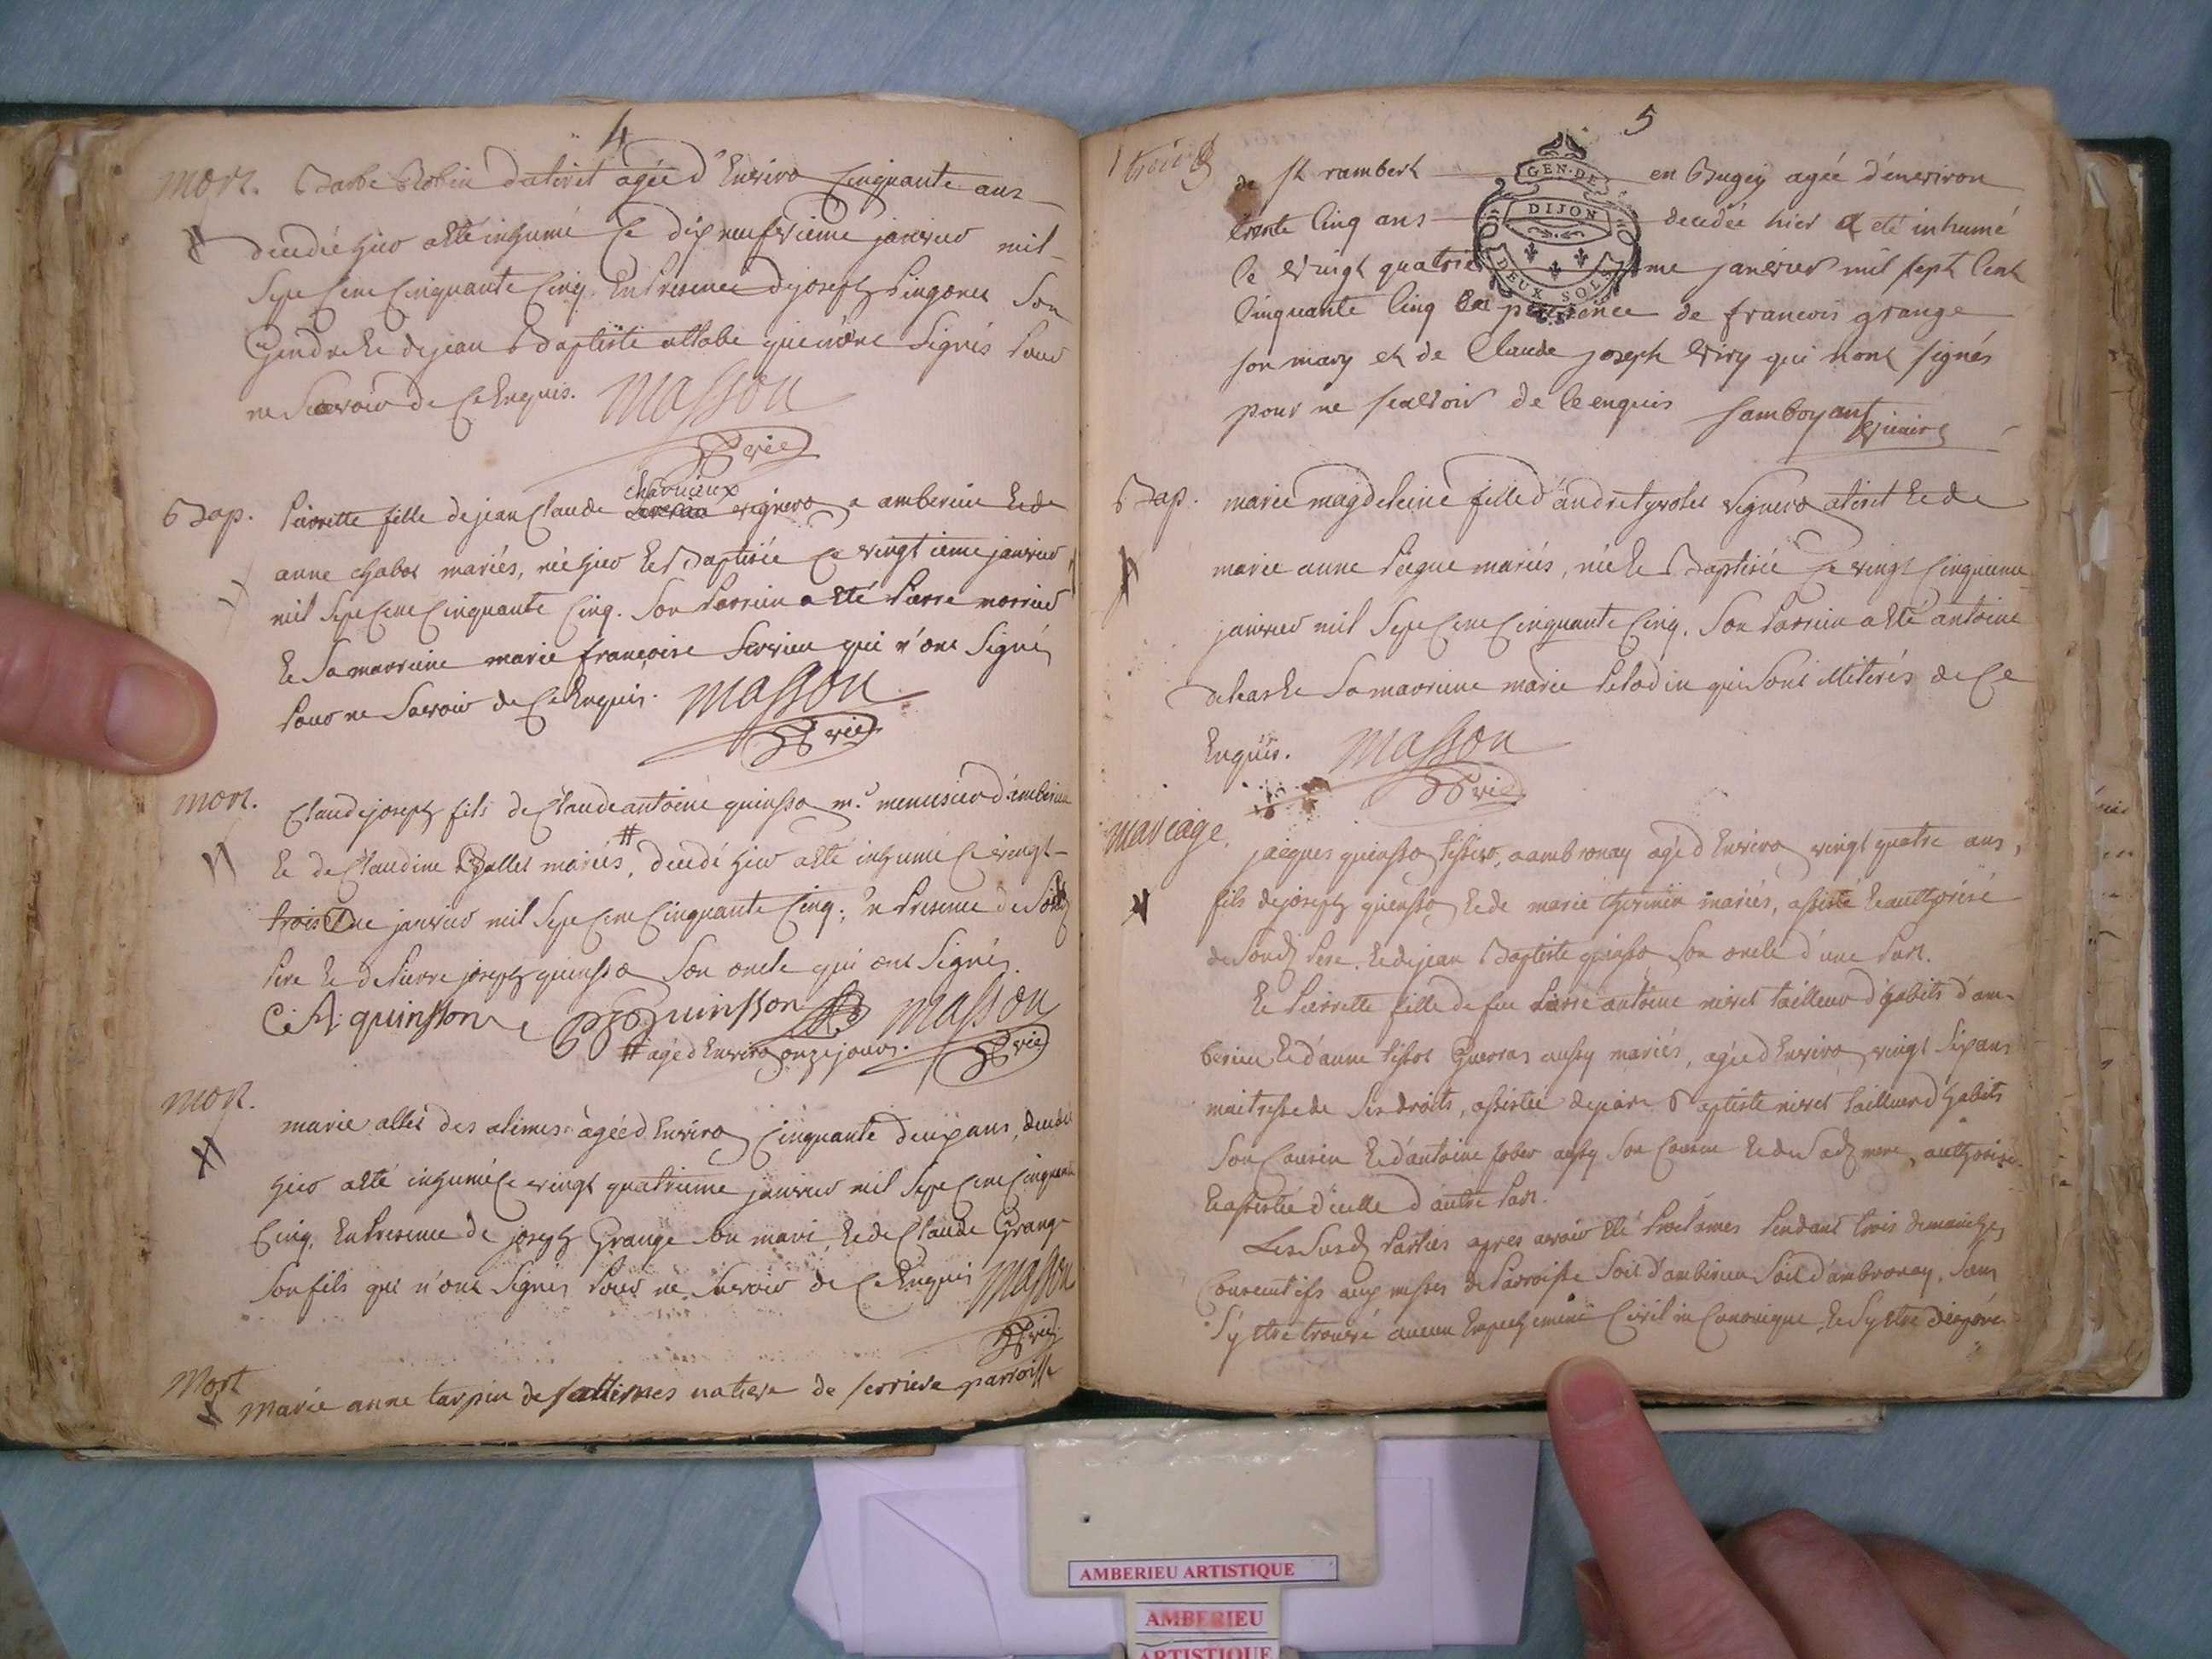 4
mort. Barbe Robin dativet agée d'Enviro Cinquante ans
decedée hier a Eté inhumé Ce dix neufvieme janvier mil
Sept Cent Cinquante Cinq. En Presence de joseph Son
Gendre Et de jean Baptiste qui n'ont Signés Pour
ne Scavoir de Ce Enquis. Masson
vic
charvieux
Bap. Pierrette fille de jean Claude vignero a amberieu Et de
anne chabot mariés, née hier Et Baptisée Ce vingtieme janvier
mil Sept Cent Cinquante Cinq. Son Parrein a Eté Pierre
Et Sa marreine marie francoise qui n'ont Signé,
Pour ne Savoir de Ce Enquis. Masson
vic
mort. Claude joseph fils de Claude antoine quinsso m.e menusier d'amberieu
#
Et de Claudine mariés, decedé hier a Eté inhumé Ce vingt
trois janvier mil Sept Cent Cinquante Cinq. En Presence de Sond.
Pere Et de Pierre joseph quinsso Son oncle qui ont Signés.
C. A. quinsson Quinsson Masson
# agé d'Enviro onze jours. vic
mort.
marie allet des alimes agée d'Enviro Cinquante deux ans, decedée
hier a Eté inhumée Ce vingt quatrieme janvier mil Sept Cent Cinquante
Cinq. En Presence de joseph Grange Son mari, Et de Claude Grange
Son fils qui n'ont Signés Pour ne Savoir de Ce Enquis Masson
vic
Mort
Marie anne tarpin des allimes native de serriere parroisse
5
trois
de st rambert en Bugey agée d'environ
trente cinq ans decedée hier a eté inhumé
le vingt quatrie me janvier mil sept cent
cinquante cinq en presence de francois grange
son mary et de Claude joseph qui n'ont signés
pour ne scavoir de ce enquis Samboyant
vicaire
GEN·DE
DIJON
DEUX SOLS
Bap. marie magdeleine fille d'andre vignero ativet Et de
marie anne mariés, née Et Baptisée Ce vingt Cinquieme
janvier mil Sept Cent Cinquante Cinq. Son Parrein a Eté antoine
Et Sa marreine marie qui Sont illiterés de Ce
Enquis. Masson
vic
Mariage. jacques quinsso tissero, a ambronay agé d'Enviro vingt quatre ans,
fils de joseph quinsso Et de marie mariés, assisté Et authorisé
de Sond. Pere. Et de jean Baptiste quinsso Son oncle d'une Part.
Et Pierrette fille de feu Pierre antoine nivet tailleur d'habits d'am-
berieu Et d'anne tissot aussy mariés, agée d'Enviro vingt Six ans
maitresse de Ses droits, assistée de jean Baptiste nivet tailleur d'habits
Son Cousin Et d'antoine aussy Son Cousin Et de Sad. mere, authorisée
Et assistée d'icelle d'autre Part.
Les Susd. Parties apres avoir Eté Proclamés Pendant trois dimanches
Consecutifs aux messes de Parroisse Soit d'amberieu Soit d'ambronay, Sans
S'y Etre trouvé aucun Empechement Civil ni Canonique, Et S'y Etre disposés
AMBERIEU ARTISTIQUE
AMBERIEU
ARTISTIQUE